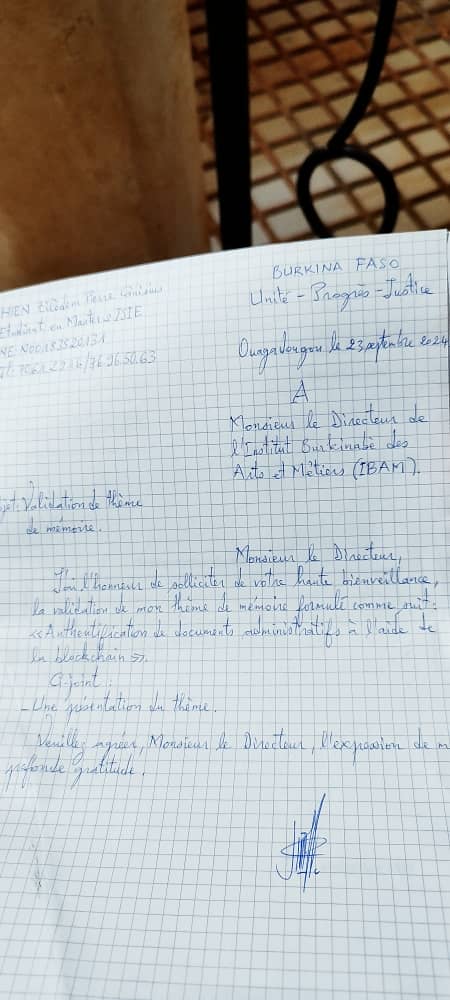 BURKINA FASO
Unité - Progrès - Justice
HIEN Pierre
Etudiant en Master
Ouagadougou le 23 septembre 2024
A
Monsieur le Directeur de
l'Institut Burkinabè des
Arts et Métiers (IBAM).
jet: Validation de thème
de mémoire.
Monsieur le Directeur,
J'ai l'honneur de solliciter de votre haute bienveillance,
la validation de mon thème de mémoire formulé comme suit:
<<Authentification de documents administratifs à l'aide de
la blockchain>>.
Ci-joint:
- Une présentation du thème.
Veuillez agréer, Monsieur le Directeur, l'expression de m
profonde gratitude.